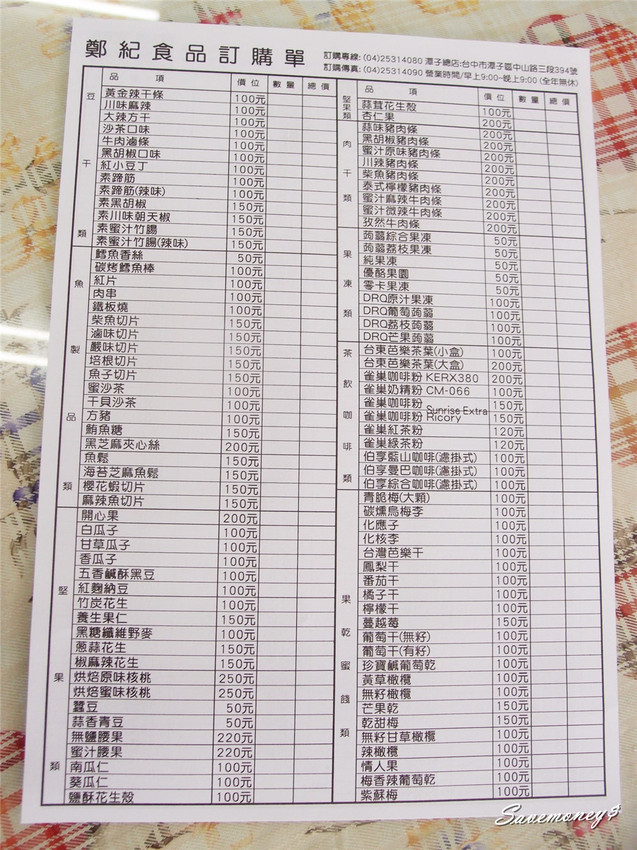 鄭紀食品訂購單
訂購專線: (04)25314080 潭子總店:台中市潭子區中山路三段394號
訂購傳真: (04)25314090 營業時間/早上9:00~晚上9:00 (全年無休)
品 項 價位 數量 總價
豆干類
黃金辣干條 100元
川味麻辣 100元
大辣方干 100元
沙茶口味 100元
牛肉滷條 100元
黑胡椒口味 100元
紅小豆丁 100元
素蹄筋 100元
素蹄筋(辣味) 100元
素黑胡椒 150元
素川味朝天椒 150元
素蜜汁竹腸 150元
素蜜汁竹腸(辣味) 150元
魚製品類
鱈魚香絲 50元
碳烤鱈魚棒 100元
紅片 100元
肉串 100元
鐵板燒 100元
柴魚切片 150元
滷味切片 150元
嚴味切片 150元
培根切片 150元
魚子切片 150元
蜜沙茶 100元
干貝沙茶 100元
方豬 100元
鮪魚糖 150元
黑芝麻夾心絲 200元
魚鬆 150元
海苔芝麻魚鬆 150元
櫻花蝦切片 150元
麻辣魚切片 150元
堅果類
開心果 200元
白瓜子 100元
甘草瓜子 100元
香瓜子 100元
五香鹹酥黑豆 100元
紅麴納豆 100元
竹炭花生 100元
養生果仁 150元
黑糖纖維野麥 100元
蔥蒜花生 150元
椒麻辣花生 150元
烘焙原味核桃 250元
烘焙蜜味核桃 250元
蠶豆 50元
蒜香青豆 50元
無鹽腰果 220元
蜜汁腰果 220元
南瓜仁 100元
葵瓜仁 100元
鹽酥花生殼 100元
品 項 價位 數量 總價
堅果類
蒜茸花生殼 100元
杏仁果 200元
肉干類
蒜味豬肉條 200元
黑胡椒豬肉條 200元
蜜汁原味豬肉條 200元
川辣豬肉條 200元
柴魚豬肉條 200元
泰式檸檬豬肉條 200元
蜜汁麻辣牛肉條 200元
蜜汁微辣牛肉條 200元
孜然牛肉條 200元
果凍類
蒟蒻綜合果凍 50元
蒟蒻荔枝果凍 50元
純果凍 50元
優酪果園 50元
零卡果凍 50元
DRQ原汁果凍 100元
DRQ葡萄蒟蒻 100元
DRQ荔枝蒟蒻 100元
DRQ芒果蒟蒻 100元
茶飲咖啡類
台東芭樂茶葉(小盒) 100元
台東芭樂茶葉(大盒) 200元
雀巢咖啡粉 KERX380 200元
雀巢奶精粉 CM-066 100元
雀巢咖啡粉 Sunrise Extra 150元
雀巢咖啡粉 Ricory 150元
雀巢紅茶粉 120元
雀巢綠茶粉 120元
伯享藍山咖啡(濾掛式) 100元
伯享曼巴咖啡(濾掛式) 100元
伯享綜合咖啡(濾掛式) 100元
果乾蜜餞類
青脆梅(大顆) 100元
碳燻烏梅李 100元
化應子 100元
化核李 100元
台灣芭樂干 100元
鳳梨干 100元
番茄干 100元
橘子干 100元
檸檬干 100元
蔓越莓 150元
葡萄干(無籽) 100元
葡萄干(有籽) 100元
珍寶鹹葡萄乾 100元
黃草橄欖 100元
無籽橄欖 100元
芒果乾 150元
乾甜梅 150元
無籽甘草橄欖 100元
辣橄欖 100元
情人果 100元
梅香辣葡萄乾 100元
紫蘇梅 100元
Savemoney$